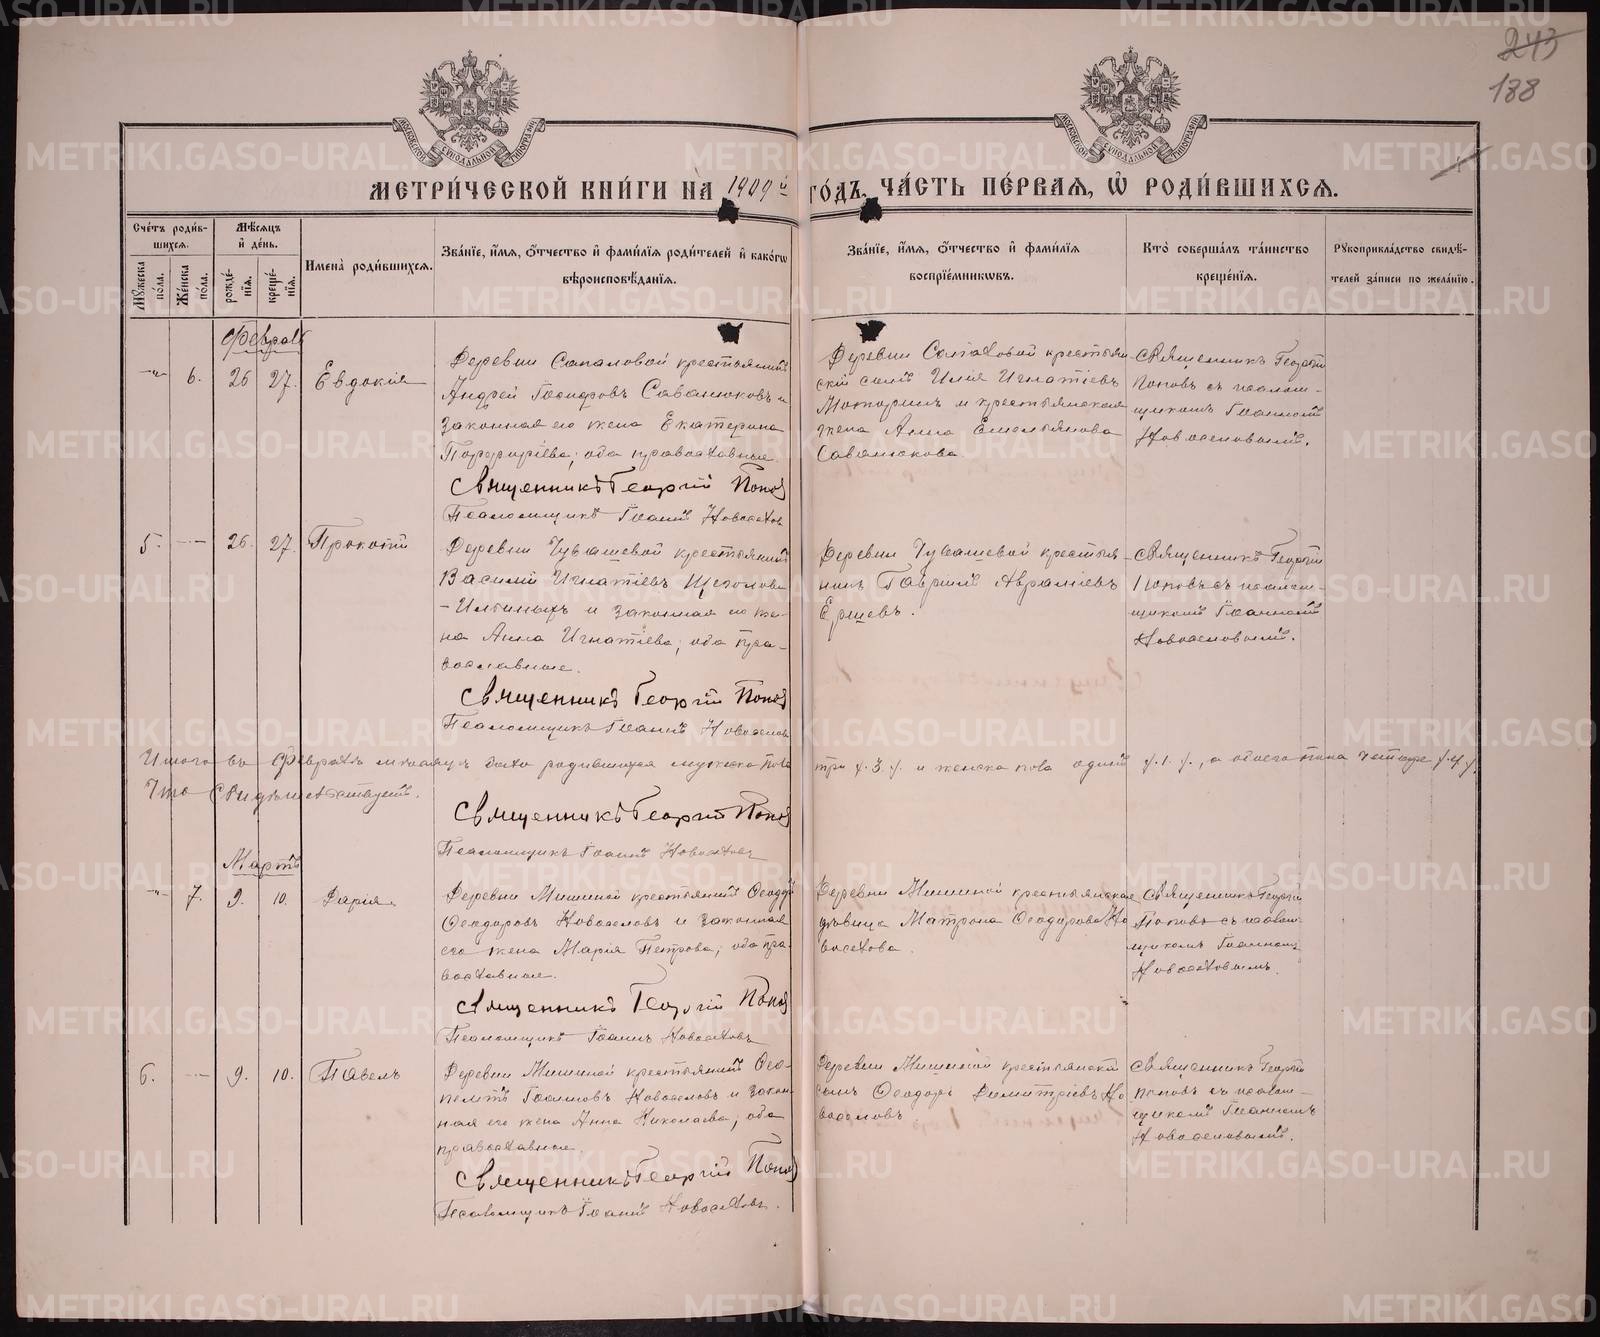 243
188
МОСКОВСКОЙ СѴНОДАЛЬНОЙ ТИПОГРАФІИ
МОСКОВСКОЙ СѴНОДАЛЬНОЙ ТИПОГРАФІИ
МЕТРИ́ЧЕСКОЙ КНИ́ГИ НА̀ 1909й ГО́ДЪ, ЧА́СТЬ ПЕ́РВАЯ, Ѡ҆ РОДИ́ВШИХСЯ.
Сче́тъ роди́в-
шихся.
Мꙋ́жеска по́ла.
Же́нска по́ла.
Мѣ́сяцъ
и҆ де́нь.
рожде́-
нїя.
креще́-
нїя.
И҆мена̀ роди́вшихся.
Зва́нїе, и҆́мя, ѻ҆́тчество и҆ фами́лїя роди́телей и҆ како́гѡ
вѣроисповѣ́данїя.
Зва́нїе, и҆́мя, ѻ҆́тчество и҆ фами́лїя
воспрїе́мникѡвъ.
Кто̀ соверша́лъ та́инство
креще́нїя.
Рꙋкоприкла́дство свидѣ́-
телей за́писи по жела́нїю.
Февраль
-"- 6. 26 27. Евдокія
Деревни Сапаловой крестьянинъ
Андрей Іосифовъ Саванюковъ и
законная его жена Екатерина
Порфиріева; оба православные.
Священникъ Георгій Попов
Псаломщикъ Іоаннъ Новоселов
Деревни Сапаловой крестьян-
скій сынъ Илія Игнатіевъ
и крестьянская
жена Анна Емельянова
Саванюкова
Священникъ Георгій
Поповъ съ псалом-
щикомъ Іоанномъ
Новоселовымъ.
5. -"- 26. 27. Прокопій
Деревни Чувашевой крестьянинъ
Василій Игнатіевъ Щеголевъ
-Ильиныхъ и законная его же-
на Анна Игнатіева; оба пра-
вославные.
Священникъ Георгій Попов
Псаломщикъ Іоаннъ Новоселов
Деревни Чувашевой крестья-
нинъ Гавріилъ Авраміевъ
Ершевъ.
Священникъ Георгій
Поповъ съ псалом-
щикомъ Іоанномъ
Новоселовымъ.
Итого въ Февралѣ мѣсяцѣ было родившихся мужска пола три /.3./. и женска пола одинъ /.1./., а обоего пола четыре /.4./.
Что свидѣтельствуемъ.
Священникъ Георгій Попов
Псаломщикъ Іоаннъ Новоселов
Мартъ
-"- 7. 9. 10. Дарія
Деревни Мишиной крестьянинъ Ѳеодоръ
Ѳеодоровъ Новоселовъ и законная
его жена Марія Петрова; оба пра-
вославные.
Священникъ Георгій Попов
Псаломщикъ Іоаннъ Новоселовъ
Деревни Мишиной крестьянская
дѣвица Матрона Ѳеодорова Но-
воселова.
Священникъ Георгій
Поповъ съ псалом-
щикомъ Іоанномъ
Новоселовымъ.
6. -"- 9. 10. Павелъ
Деревни Мишиной крестьянинъ Ѳео-
пемптъ Іоанновъ Новоселовъ и закон-
ная его жена Анна Николаева; оба
православные.
Священникъ Георгій Попов
Псаломщикъ Іоаннъ Новоселовъ.
Деревни Мишиной крестьянскій
сынъ Ѳеодоръ Димитріевъ Но-
воселовъ.
Священникъ Георгій
Поповъ съ псалом-
щикомъ Іоанномъ
Новоселовымъ.
METRIKI.GASO-URAL.RU